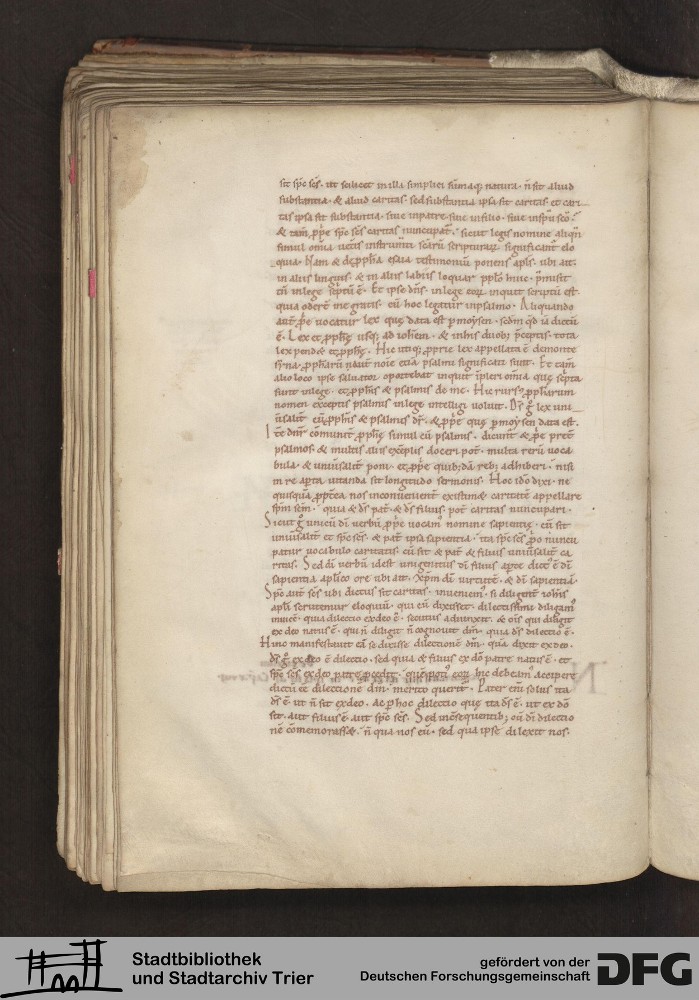 sit sp̅c sc̅s. ut scilicet in illa simplici sūmaq; natura. n̄ sit aliud
substantia. & aliud caritas. sed substantia ipsa sit caritas. et cari_
tas ipsa sit substantia. siue inpatre siue infilio. siue inspū sc̅o.
& tam̄ p̲p̲e sp̅c sc̅s caritas nuncupat᷑. sicut legis nomine aliqn̄
simul om̅ia uet̅is instrum̅ti scarū scripturarꝝ significant᷑ elo
quia. testimoniū ponens apl̅s. ubi ait.
in aliis linguis. & in aliis labiis loquar pp̅lo huic. p̄misit
tn̄ inlege sc̅ptū ē. Et ipse dn̅s. inlege eorꝝ inquit scriptū est
quia odert̅ me gratis. cū hoc legatur inpsalmo. Aliquando
aut̅ p̲p̲e vocatur lex quę data est p̲ moysen. sc̅dm qd̅ iā dictū
ē. Lex et p̲ph̅ę usq; ad ioh̅em. & inhis duob; p̄ceptis. tota
lex pend& et p̲ph̅ę. Hic utiq; p̲prie lex appellata ē demonte
syna. p̲ph̅arū noīe etiā psalmi significati sunt. Et tam̄
alio loco ipse saluator. oportebat inquit īpleri om̅ia quę sc̅pta
sunt inlege. et p̲ph̅is & psalmis de me. Hic rursꝰ p̲ph̅arum
nomen exceptis psalmis inlege intelligi uoluit. Dr̅ g̊ lex uni_
ūsalit̅ cū p̲ph̅is & psalmis dr̅. & p̲p̲e quę p̲ moysen data est.
Itē dnr̅ com̄unit̅ p̲ph̅ię simul cū psalmis. dicunt᷑ & p̲p̲e p̄t̅
psalmos. & multis aliis exēplis doceri pot̅. multa rerū uoca
bula. & uniūsalit̅ poni. et p̲p̲e quib;dā reb; adhiberi. nisi
in re ap̲ta uitanda sit longitudo sermonis. Hoc ido̅ dixi. ne
quisquā p̲pt̅ea nos inconuenient̅ existim& caritatē appellare
sp̅m sc̅m. quia & dš pat̅. & dš filius. pot̅ caritas nuncupari.
Sicut g̊ unicū di̅ uerbū p̲p̲e uocamꝰ nomine sapientię. cū sit
uniūsalit̅ et sp̅c sc̅s. & pat̅ ipsa sapientia. ita sp̅c sc̅s p̲p̲o nuncu
patur uocabulo caritatis. cū sit & pat̅ & filius uniūsalit̅ ca
ritas. Sed di̅ uerbū idest unigenitus di̅ filius ap̲te dictꝰ ē di̅
sapientia aplico ore ubi ait. Xp̅m di̅ uirtutē. & di̅ sapientiā.
Sp̅c aut̅ sc̅s ubi dictus sit caritas. inueniemꝰ. si diligent̅ ioh̅is
apl̅i scrutemur eloquiū. qui cū dixisset. dilectissimi diligamꝰ
inuicē. quia dilectio exdeo ē. secutus adiunxit. & om̅s qui diligit
ex deo natus ē. qui n̄ diligit n̄ cognouit dm̅. quia dš dilectio ē.
Hinc manifestauit eā se dixisse dilectionē dm̅. quā dixit exdeo.
Dš g̊ exdeo ē dilectio. sed quia & filius ex do̅ patre natus ē. et
sp̅c sc̅s exdeo patre p̲cedit. quē potiꝰ eorꝝ hic debeam᷑ accipere
dictū ee̅ dilectionē dm̅. merito querit᷑. Pater eni̅ solus ita
dš ē. ut n̄ sit exdeo. ac p̲ hoc dilectio quę ita dš ē. ut ex do̅
sit. aut filius ē. aut sp̅c sc̅s. Sed incōsequentib; cū di̅ dilectio
nē cōmemorass&. n̄ qua nos eū. sed qua ipse dilexit nos.
Stadtbibliothek
und Stadtarchiv Trier
gefördert von der
Deutschen Forschungsgemeinschaft
DFG